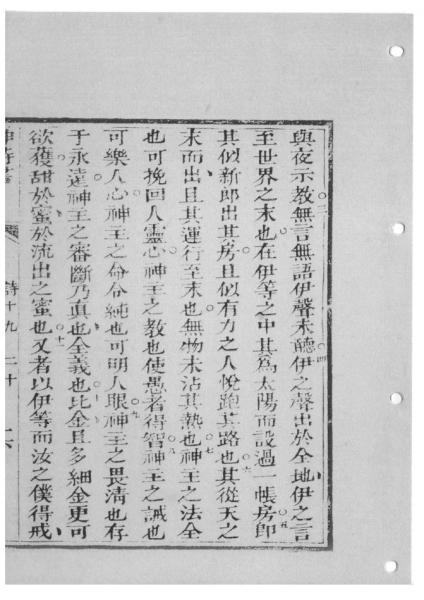 與夜示教無言無語伊聲未聽伊之聲出於全地伊之言
至世界之末也在伊等之中其爲太陽而設過一帳房卽
其似新郎出其房且似有力之人悅跑其路也其從天之
末而出且其運行至末也無物未沾其熱也神主之法全
也可挽回人靈心神主之教也使愚者得智神主之誡也
可樂人心神主之命令純也可明人眼神主之畏清也存
于永遠神主之審斷乃真也全義也比金且多細金更可
欲獲甜於蜜於流出之蜜也又者以伊等而汝之僕得戒
詩十九 二十